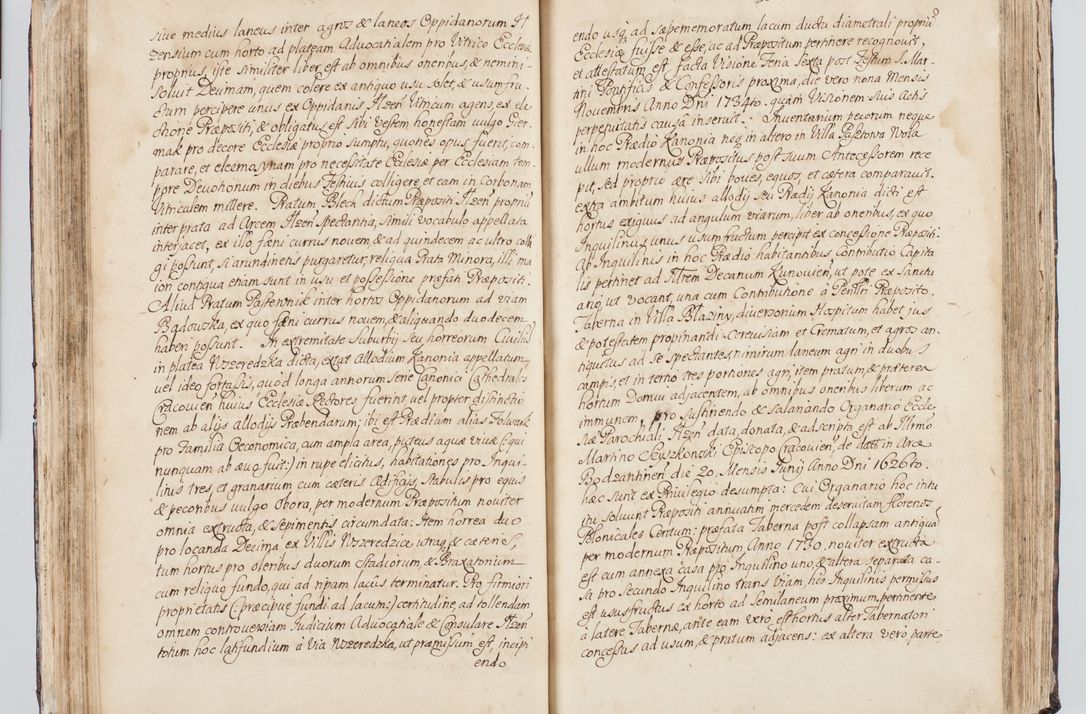 siue medius laneus inter agros & laneos Oppidanorum Il
zensium cum horto ad plateam Advocatialem pro Vitrico Ecclesiæ
proprius, iste similiter liber est ab omnibus oneribus, & nemini
soluit Decimam, quem colere ex antiquo usu solet, & usumfru-
ctum percipere unus ex Oppidanis Ilzen Vitricum agens, ex ele
ctione Præpositi, & obligatus est sibi Vestem honestam vulgo Gier-
mak pro decore Ecclesiæ proprio sumptu, quoties opus fuerit, com-
parare, et eleemosynam pro necessitate Ecclesiæ per Ecclesiam tem-
pore Devotionum in diebus Festiuis colligere, et eam in Corbonam
Vitricalem mittere. Pratum Blech dictum Præpositi Ilzen propriũ
inter prata ad Arcem Ilzen spectantia, simili vocabulo appellata
interjacet, ex illo fæni currus nouem, & ad quindecem ac ultro colli
gi possunt, si arundinetis purgaretur, reliqua Prata Minora, illi ma
iori contigua etiam sunt in usu et possessione præfati Præpositi.
Aliud Pratum Pasternik inter hortos Oppidanorum ad viam
Bądouszka, ex quo fæni currus nouem, & aliquando duodecem
haberi possunt. In extremitate Suburbij seu horreorum Civiliũ
in platea Wzeredzka dicta, extat Allodium Kanonia appellatum,
vel ideo fortassis, quod longa annorum serie Canonici Cathedrales
Cracouien huius Ecclesiæ Rectores fuerint, vel propter distinctio
nem ab alijs allodijs Præbendarum; ibi est Prædium alias Folwark
pro Familia Oeconomica, cum ampla area, puteus aquæ vivæ (: qui
nunquam ab ævo fuit:) in rupe elicitus, habitationes pro Inqui-
linis tres, et granarium cum cæteris Ædificijs, Stabulis pro equis
& pecoribus vulgo Obora, per modernum Præpositum noviter
omnia extructa, & sepimentis circumdata: Item horrea duo
pro locanda Decima ex Villis Wzeredzice utrasq & cæteris,
tum hortus pro oleribus duorum Stadiorum, & Braxatorium
cum reliquo fundo, qui ad ripam lacus terminatur. Pro firmiori
proprietatis (: præcipue fundi ad lacum:) certitudine, ad tollendam
omnem controversiam Iudicium Advocatiale & Consulare Ilzen
totum hoc latifundium à Via Wzeredzka, ut præmissum est, incipi
endo
endo usq ad sæpememoratum lacum ductu diametrali propriũ
Ecclesiæ fuisse & esse, ac ad Præpositum pertinere recognouit,
et attestatum est facta Visione Feria Sexta post Festum S. Mar-
tini Pontificis & Confessoris proxima, die vero nona Mensis
Novembris Anno Dni 1734to. quam Visionem suis Actis
perpetuitatis causâ inseruit. Inventarium pecorum neque
in hoc Prædio Kanonia neq in altero in Villa Pasztowa Wola
ullum modernus Præpositus post suum Antecessorem rece
pit, sed proprio ære sibi boves, equos, et cætera comparavit.
extra ambitum huius allodij seu Prædij Kanonia dicti est
hortus exiguus ad angulum viarum, liber ab oneribus, ex quo
Inquilinus unus usumfructum percipit ex concessione Præpositi:
Ab Inquilinis in hoc Prædio habitantibus Contributio Capita
lis pertinet ad Illrem Decanum Kunovien, ut pote ex Sanctu
ario, ut vocant, una cum Contributione à Pentri Præposito.
Taberna in Villa Błaziny, diuersorium Hospitum habet jus
& potestatem propinandi Cerevisiam et Crematum, et agros an-
tiquitus ad se spectantes, nimirum laneum agri in duobus
campis, et in tertio tres portiones agri, item pratum, & præterea
hortum Domui adjacentem, ab omnibus oneribus liberum ac
immunem, pro sustinendo & salariando Organario Eccle,
siæ Parochiali Ilzen data, donata, & adscripta est ab Illrmo
Martino Szyszkowski Episcopo Cracovien, de datt in Arce
Bodzantinen die 20. Mensis Iunij Anno Dni 1626to.
hæc sunt ex Privilegio desumpta: Cui Organario hoc intu
itu soluunt Præpositi annuatim mercedem deservitam florenos
Polonicales Centum: præfata Taberna post collapsam antiquã
per modernum Præpositum Anno 1730. noviter extructa
est cum annexa casa pro Inquilino uno, & altera separata ca-
sa pro secundo Inquilino trans viam, his Inquilinis permissus
est ususfructus ex horto ad Semilaneum proximum pertinente
à latere Tabernæ, ante eam vero est hortus alter Tabernatori
concessus ad usum, & pratum adjacens: ex altera vero parte